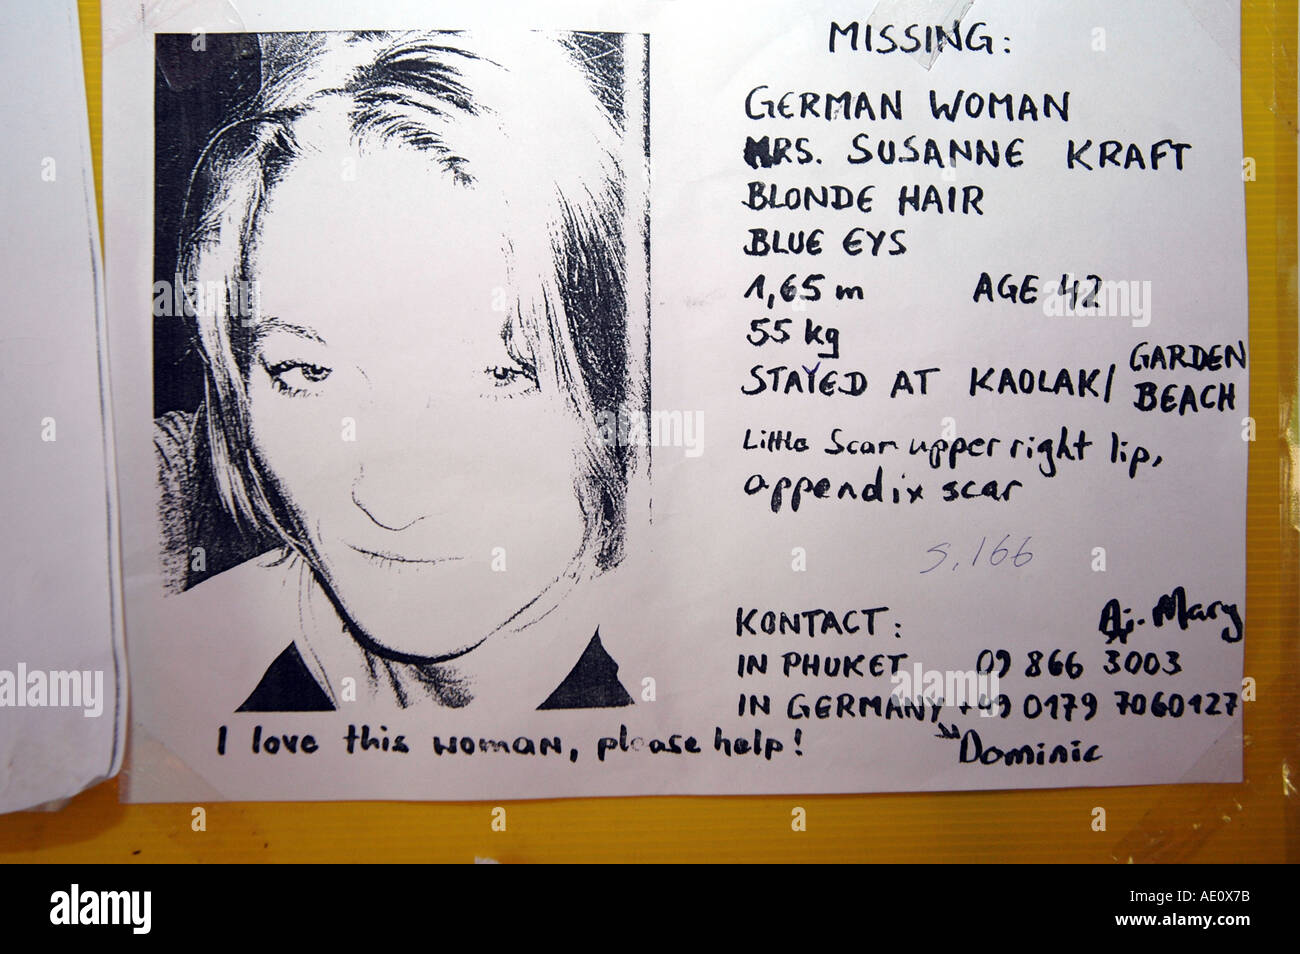 MISSING:
GERMAN WOMAN
MRS. SUSANNE KRAFT
BLONDE HAIR
BLUE EYS
1,65 m AGE 42
55 kg
STAYED AT KAOLAK/ GARDEN BEACH
Little Scar upper right lip,
appendix scar
S. 166
KONTACT: Aj. Mary
IN PHUKET 09 866 3003
IN GERMANY +49 0179 7060127
Dominic
I love this woman, please help!
alamy
Image ID: AE0X7B
www.alamy.com